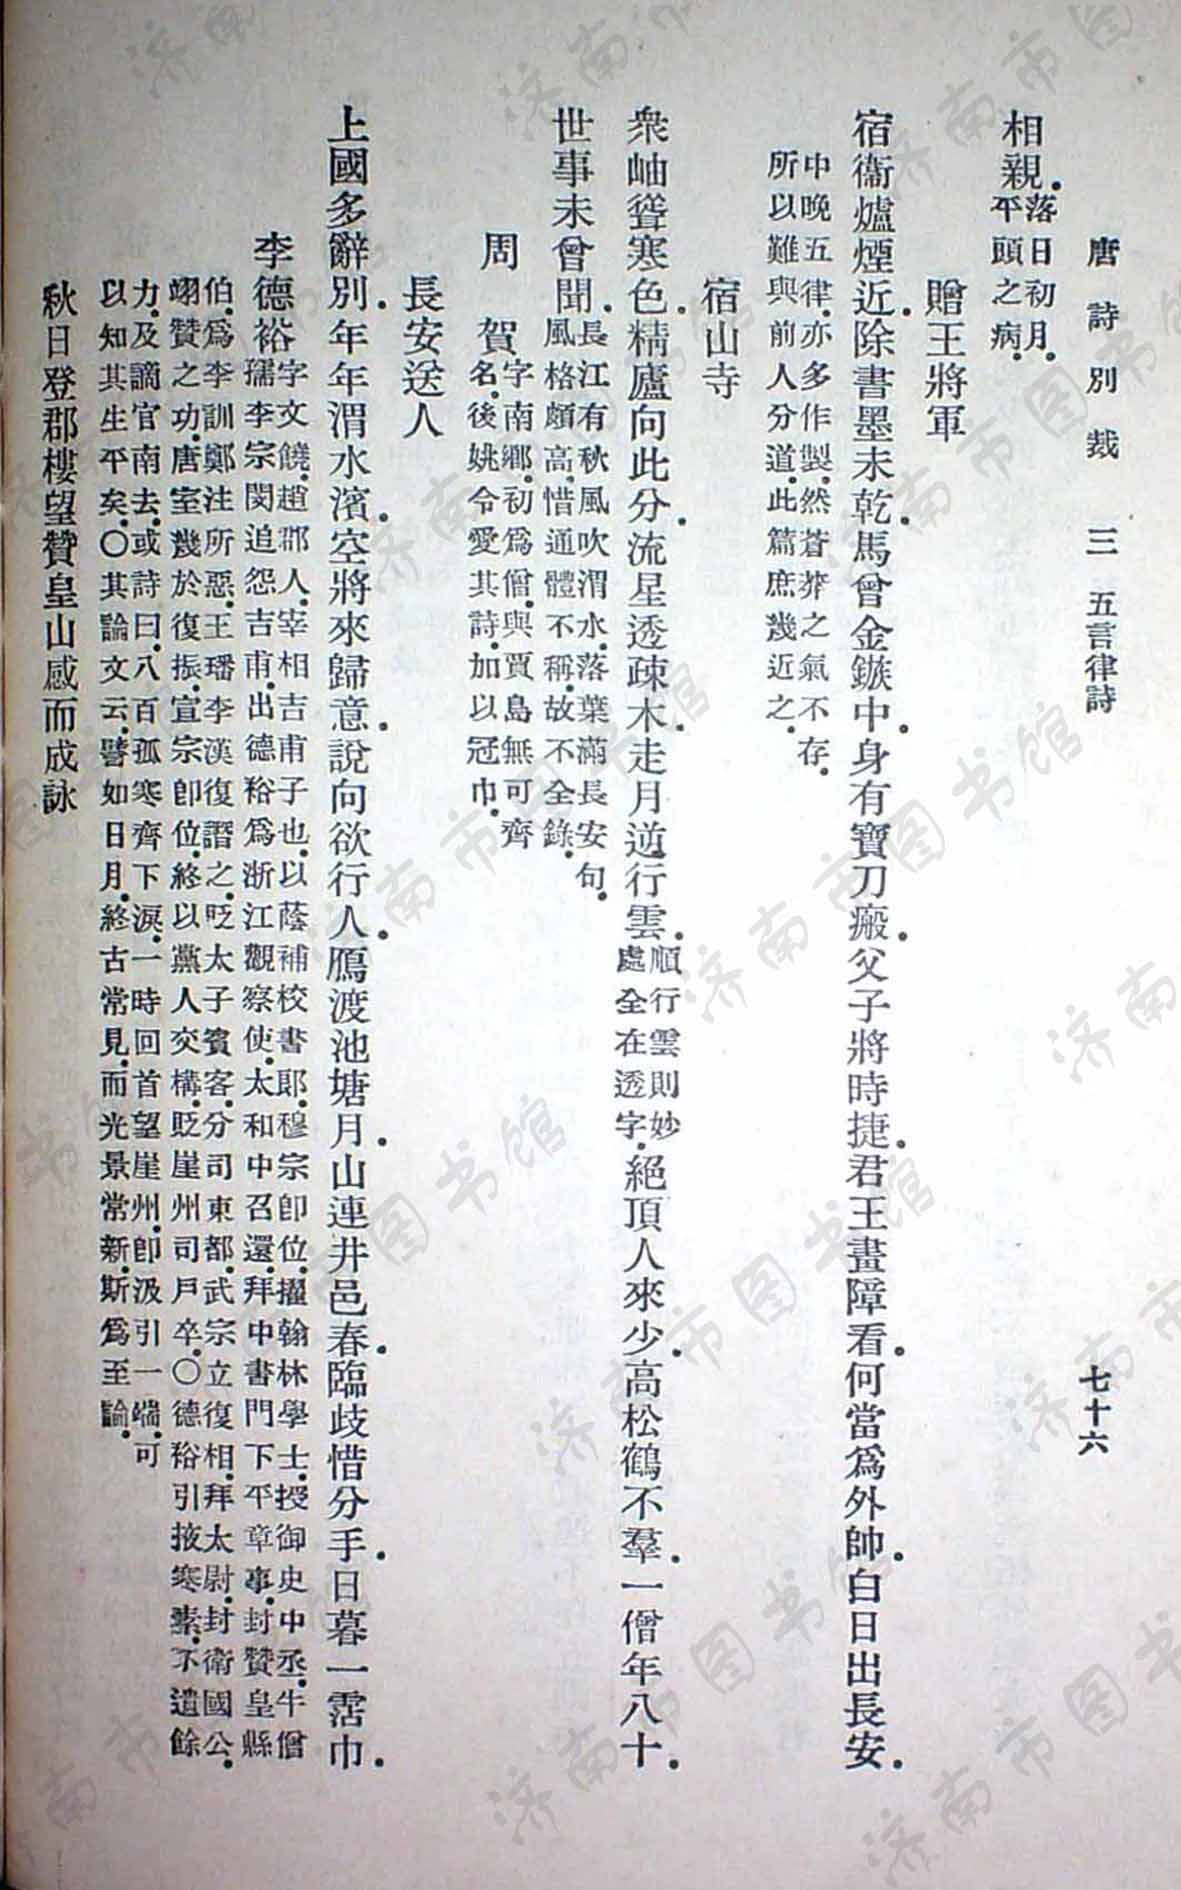 唐詩別裁　三　五言律詩　七十六
相親．落日初月．
平頭之病．
贈王將軍
宿衞爐煙近．除書墨未乾．馬曾金鏃中．身有寶刀瘢．父子將時捷．君王畫障看．何當爲外帥．白日出長安．
中晚五律．亦多作製．然蒼莽之氣不存．
所以難與前人分道．此篇庶幾近之．
宿山寺
衆岫聳寒色．精廬向此分．流星透疎木．走月逆行雲．順行雲則妙
處全在透字．絕頂人來少．高松鶴不羣．一僧年八十．
世事未曾聞．長江有秋風吹渭水．落葉滿長安句．
風格頗高．惜通體不稱．故不全錄．
周賀字南鄉．初爲僧．與賈島無可齊
名．後姚令愛其詩．加以冠巾．
長安送人
上國多辭別．年年渭水濱．空將來歸意．說向欲行人．鴈渡池塘月．山連井邑春．臨歧惜分手．日暮一霑巾．
李德裕字文饒．趙郡人．宰相吉甫子也．以蔭補校書郎．穆宗卽位．擢翰林學士．授御史中丞．牛僧
孺李宗閔追怨吉甫．出德裕爲浙江觀察使．太和中召還．拜中書門下平章事．封贊皇縣
伯．爲李訓鄭注所惡．王璠李漢復譖之．貶太子賓客．分司東都．武宗立復相．拜太尉．封衛國公．
翊贊之功．唐室幾於復振．宣宗卽位．終以黨人交構．貶崖州司戶卒．〇德裕引掖寒素．不遺餘
力．及謫官南去．或詩曰．八百孤寒齊下淚．一時回首望崖州．卽汲引一端．可
以知其生平矣．〇其論文云．譬如日月．終古常見．而光景常新．斯爲至論．
秋日登郡樓望贊皇山感而成詠